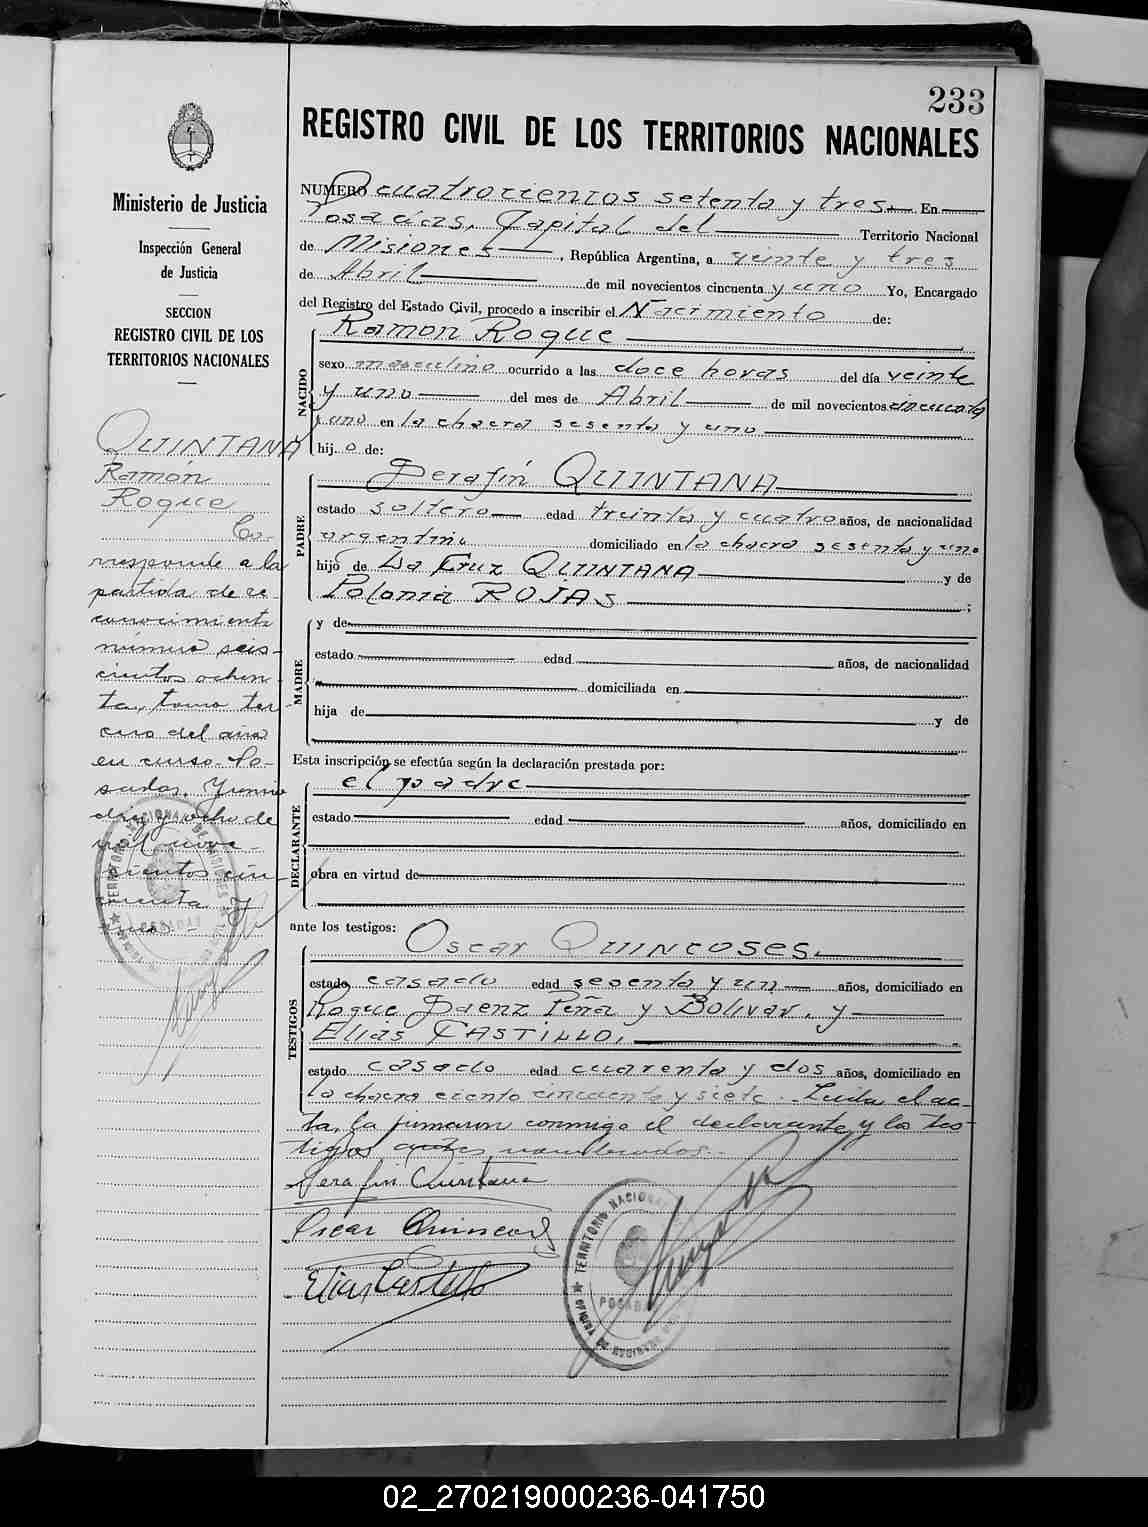 233
REGISTRO CIVIL DE LOS TERRITORIOS NACIONALES
Ministerio de Justicia
Inspección General
de Justicia
SECCION
REGISTRO CIVIL DE LOS
TERRITORIOS NACIONALES
QUINTANA
Ramón
Roque
Co-
rresponde a la
partida de re-
conocimiento
número seis-
cientos ochen-
ta, tomo ter-
cero del año
en curso. Po-
sadas, Junio
diez y ocho de
mil nove-
cientos cin-
cuenta y
uno.-
NUMERO Cuatrocientos setenta y tres En
Posadas, Capital del Territorio Nacional
de Misiones, República Argentina, a veinte y tres
de Abril de mil novecientos cincuenta y uno Yo, Encargado
del Registro del Estado Civil, procedo a inscribir el Nacimiento de:
NACIDO
Ramon Roque
sexo masculino ocurrido a las doce horas del día veinte
y uno del mes de Abril de mil novecientos cincuenta
y uno en la chacra sesenta y uno
hijo de:
PADRE
Serafín QUINTANA
estado soltero edad treinta y cuatro años, de nacionalidad
argentina domiciliado en la chacra sesenta y uno
hijo de La Cruz QUINTANA y de
Polonia ROJAS ;
MADRE
y de
estado edad años, de nacionalidad
domiciliada en
hija de y de
Esta inscripción se efectúa según la declaración prestada por:
DECLARANTE
el padre
estado edad años, domiciliado en
obra en virtud de
ante los testigos:
TESTIGOS
Oscar QUINCOSES
estado casado edad sesenta y un años, domiciliado en
Roque Saenz Peña y Bolivar, y
Elias CASTILLO,
estado casado edad cuarenta y dos años, domiciliado en
la chacra ciento cincuenta y siete. Leida el ac-
ta, la firmaron conmigo el declarante y los tes-
tigos antes nombrados.-
Serafin Quintana
Oscar Quincoses
Elias Castillo
TERRITORIO NACIONAL DE MISIONES
POSADAS
TERRITORIO NACIONAL
POSADAS
02_270219000236-041750